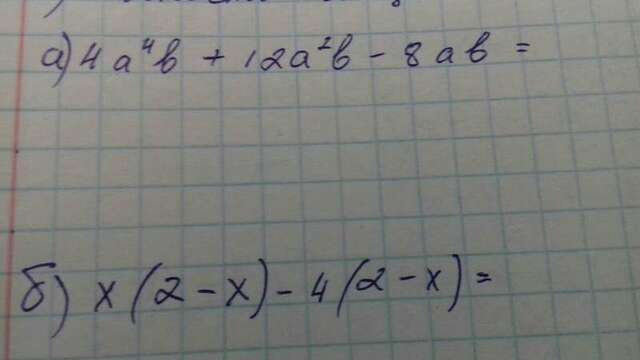 а) 4a⁴b + 12a²b - 8ab =
б) x(2-x)-4(2-x)=